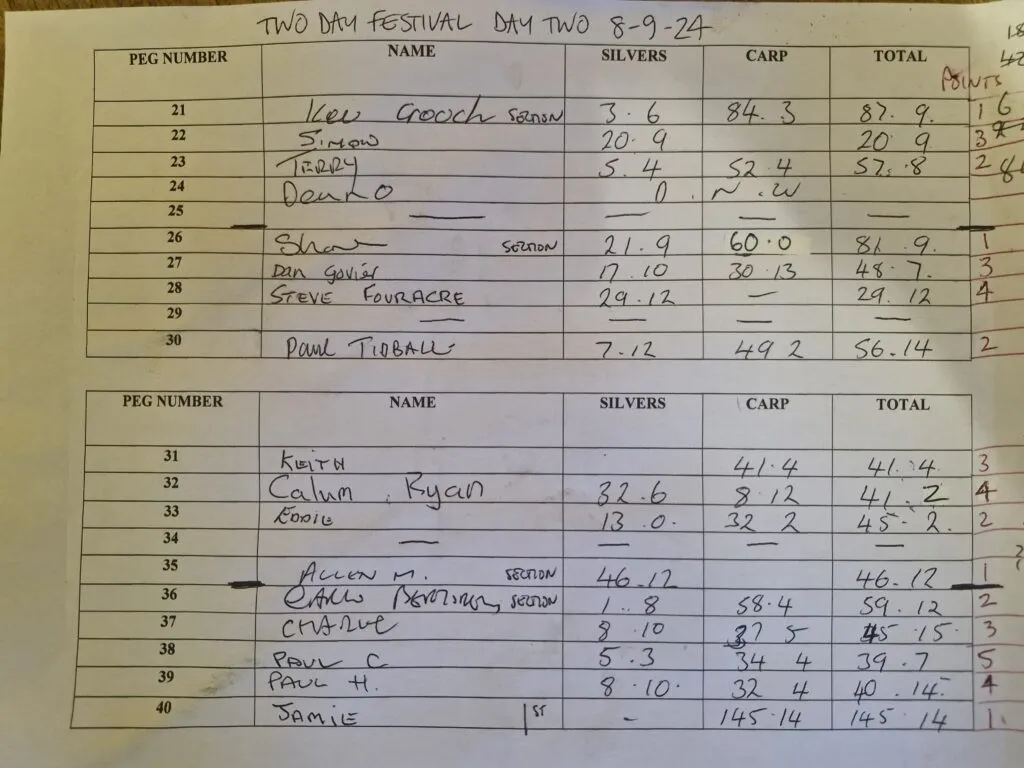 TWO DAY FESTIVAL DAY TWO 8-9-24
PEG NUMBER NAME SILVERS CARP TOTAL POINTS
21 Kev Gooch SECTION 3.6 84.3 87.9. 1
22 SIMON 20.9 20 9 3
23 TERRY 5.4 52.4 57.8 2
24 0. N.W
25 — — — —
26 SECTION 21.9 60.0 81.9. 1
27 Dan Govier 17.10 30.13 48.7. 3
28 STEVE FOURACRE 29.12 — 29.12 4
29 — — — —
30 PAUL TIDBALL 7.12 49 2 56.14 2
PEG NUMBER NAME SILVERS CARP TOTAL
31 KEITH 41.4 41.4 3
32 Calum Ryan 32.6 8.12 41.2 4
33 EDDIE 13.0. 32 2 45.2. 2
34 — — — —
35 ALLEN M. SECTION 46.12 46.12 1
36 SECTION 1.8 58.4 59.12 2
37 CHARLIE 8.10 37 5 45.15. 3
38 PAUL C 5.3 34 4 39.7 5
39 PAUL H. 8.10. 32 4 40.14. 4
40 JAMIE 1ST - 145.14 145.14 1.